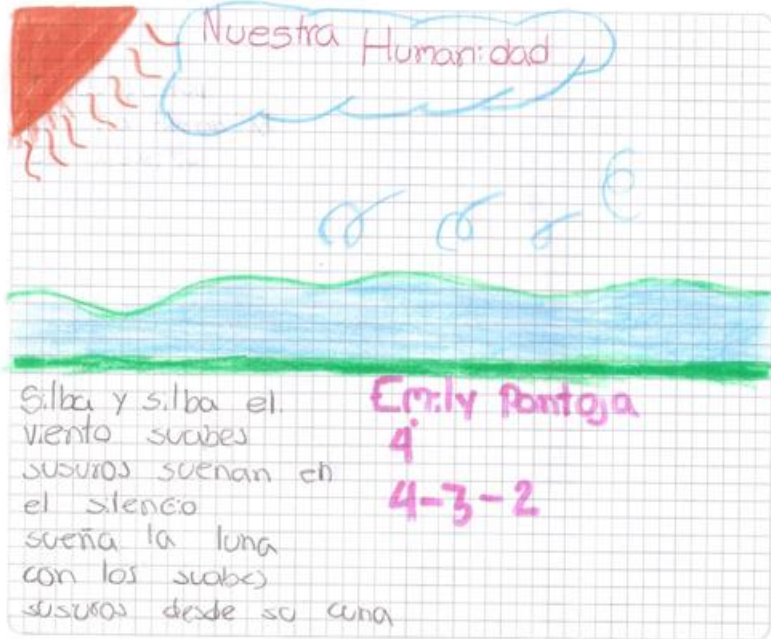 Nuestra Humanidad
Silba y silba el
viento suabes
susuros suenan en
el silencio
sueña la luna
con los suabes
susuros desde su cuna
Emily Pantoja
4°
4-3-2